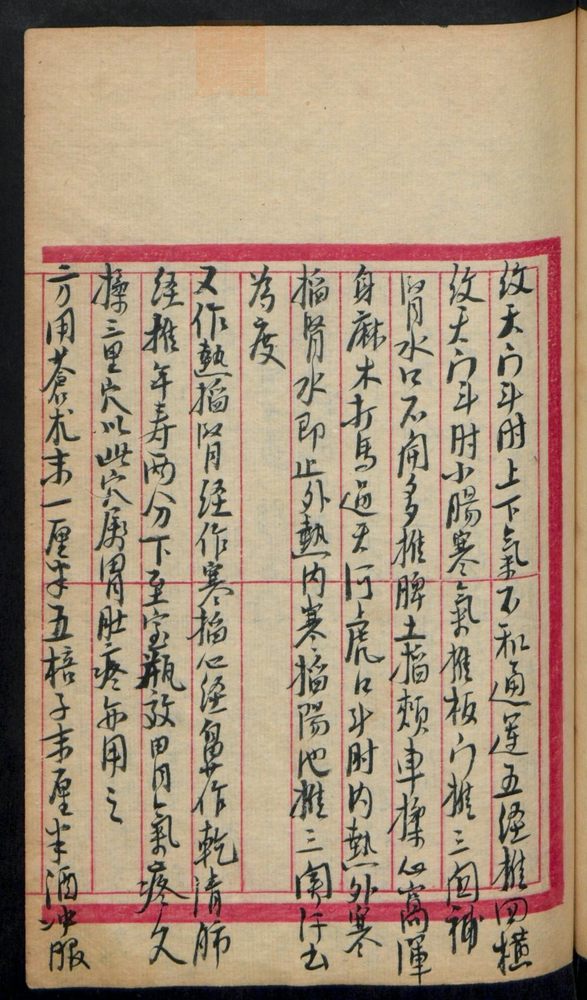 紋天门斗肘上下氣不和通運五经推四横
紋天门斗肘小腸寒氣推板门推三関補
腎水口不開多推脾土掐頰車揉心窩渾
身麻木打馬過天河上虎口斗肘内熱外寒
掐腎水即止外熱内寒掐陽池推三関汗出
為度
又作熱掐腎经作寒掐心经鼻作乾清肺
经推年寿两分下至宝瓶效田氣疼久
揉三里穴以此穴属胃肚疼亦用之
一方用蒼朮末一厘半五棓子末厘半酒冲服